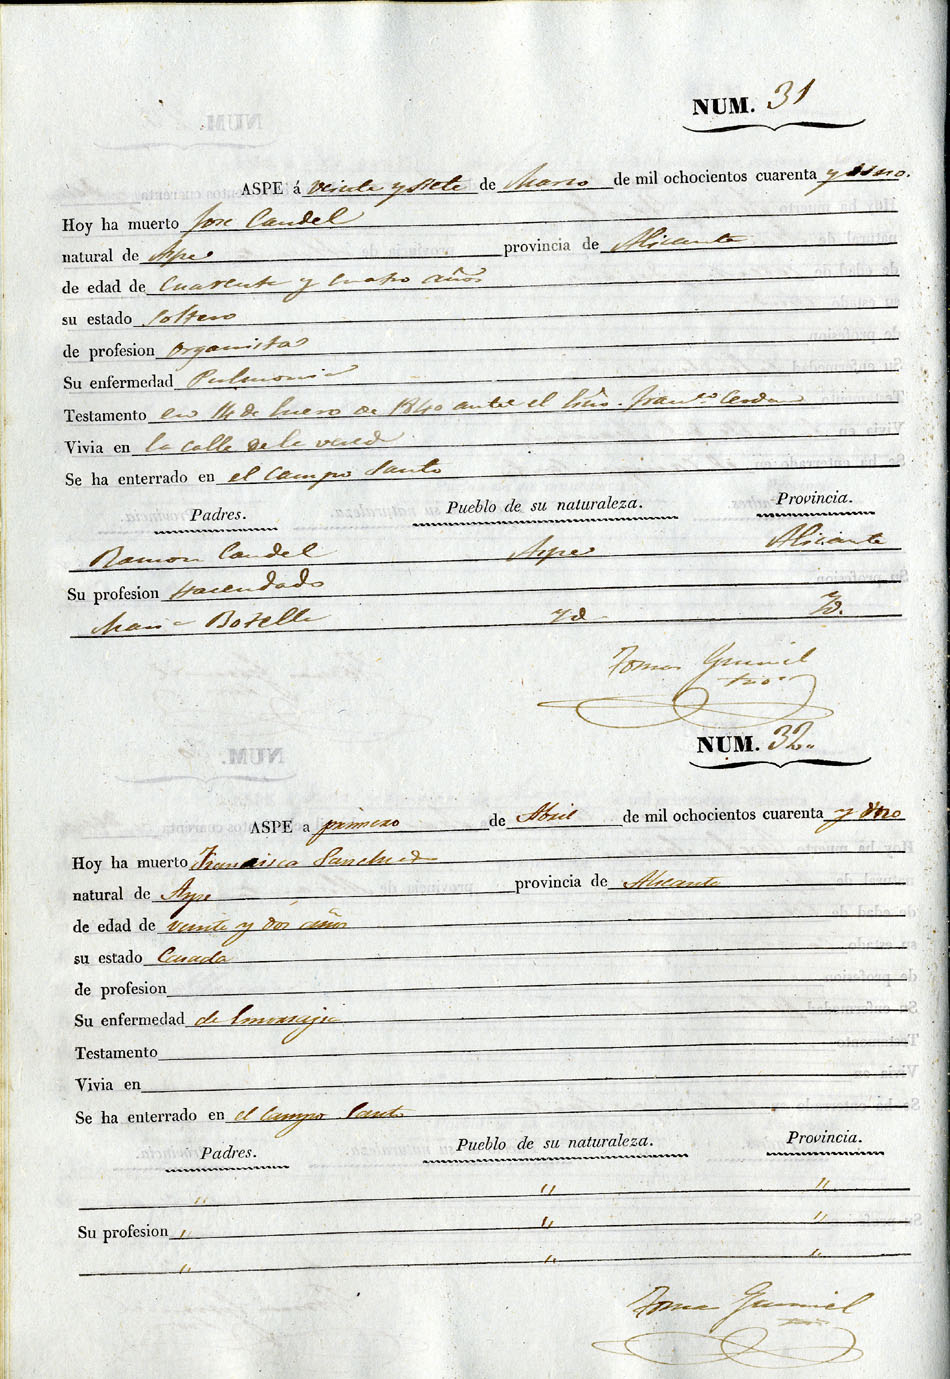 NUM. 31
ASPE á veinte y siete de Marzo de mil ochocientos cuarenta y uno.
Hoy ha muerto Jose Candel
natural de Aspe provincia de Alicante
de edad de Cuarenta y cuatro años
su estado Soltero
de profesion Organista
Su enfermedad Pulmonia
Testamento en 14 de Enero de 1840 ante el Esño. Franco. Cerdan
Vivia en la calle de la
Se ha enterrado en el Campo Santo
Padres. Pueblo de su naturaleza. Provincia.
Ramon Candel Aspe Alicante
Su profesion Hacendado
Maria Botella Yd. Yd.
Tomas
NUM. 32.
ASPE a primero de Abril de mil ochocientos cuarenta y uno
Hoy ha muerto Francisca Sanchez
natural de Aspe provincia de Alicante
de edad de veinte y dos años
su estado Casada
de profesion
Su enfermedad de
Testamento
Vivia en
Se ha enterrado en el Campo Santo
Padres. Pueblo de su naturaleza. Provincia.
" " "
Su profesion " " "
" " "
Tomas